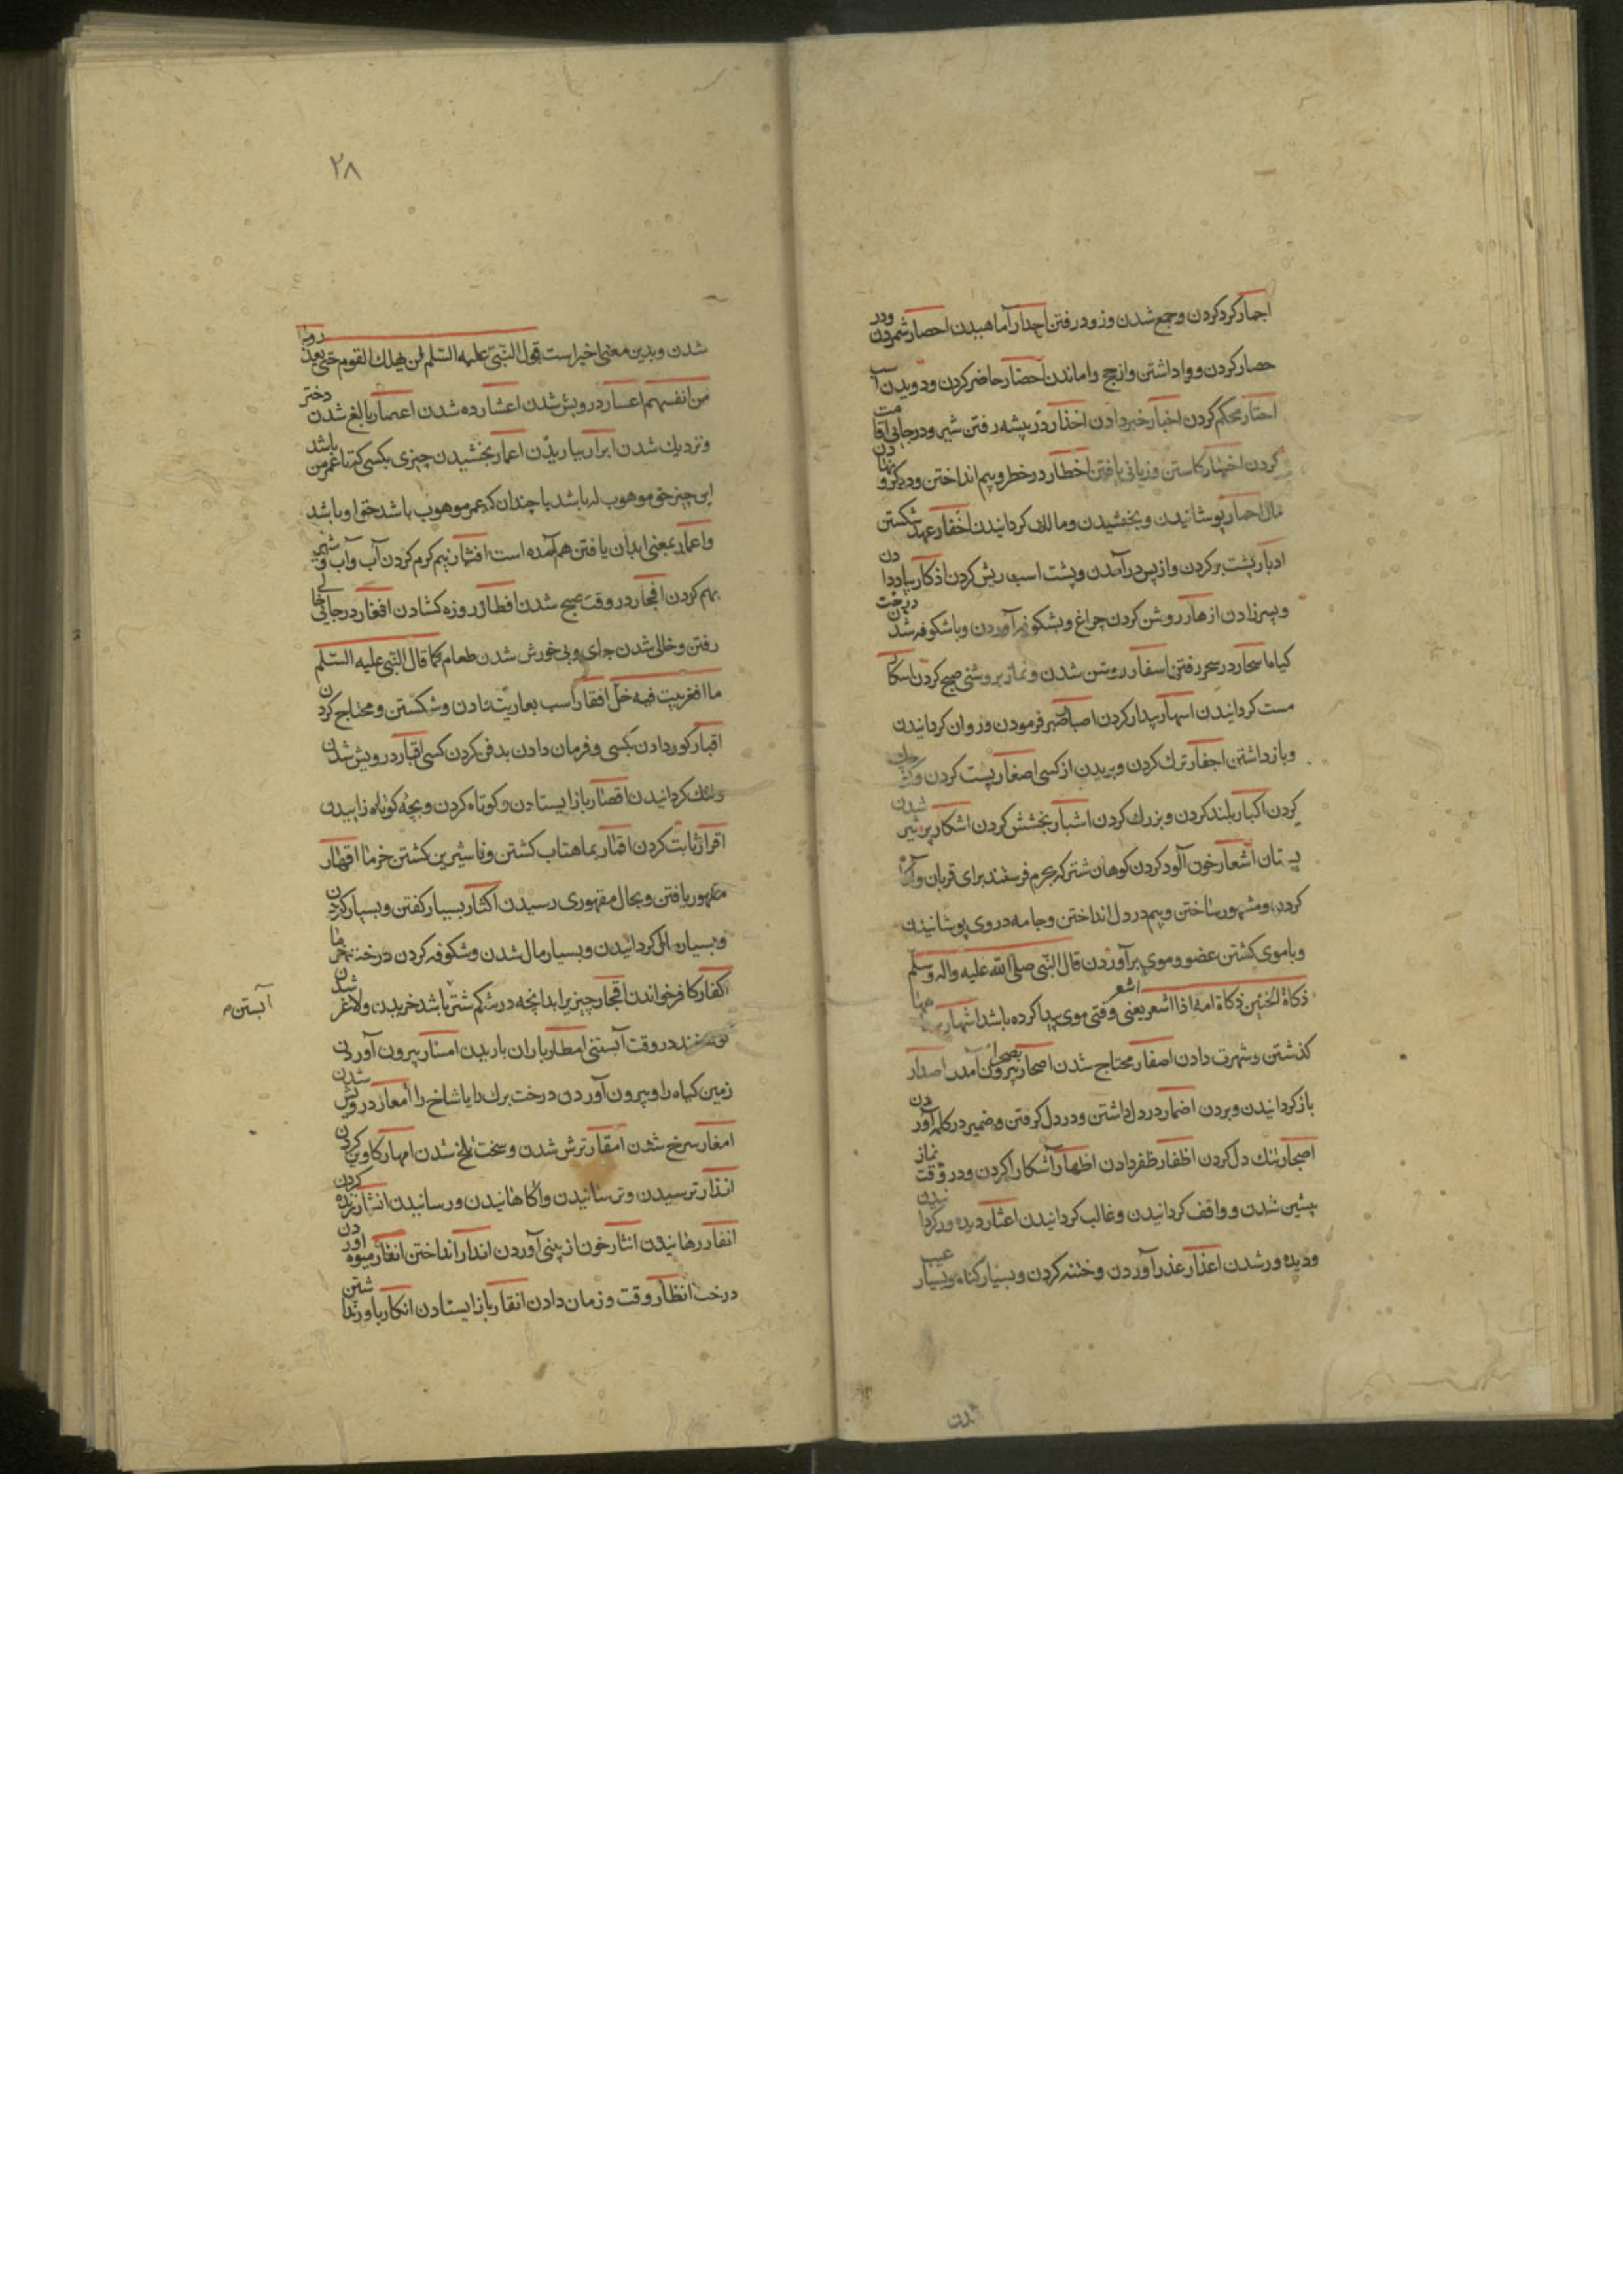 اجمار کرد کردن و جمع شدن و زود رفتن اجدار آماهیدن احصار شمردن و در
حصار کردن و واداشتن و از حج واماندن احضار حاضر کردن و دویدن اسب
احتار محکم کردن اخبار خبر دادن اخدار در بیشه رفتن شیر و در جائی اقامت
کردن اخسار کاستن و زیانی یافتن اخطار در خطر و بیم انداختن و دیکر و
مال اخمار پوشانیدن و بخشیدن و مالک کردانیدن اخفار عهد شکستن
ادبار پشت بر کردن و از پس در آمدن و پشت اسب ریش کردن اذکار بیاد دادن
و پسر زادن ازهار روشن کردن چراغ و بشکوفه آوردن و باشکوفه شدن درخت
کیاه اسحار در سحر رفتن اسفار روشن شدن و نماز بروشنی صبح کردن اسکار
مست کردانیدن اسهار بیدار کردن اصبار صبر فرمودن و روان کردانیدن
و بازداشتن اجفار ترک کردن و بریدن از کسی اصغار پست کردن و
کردن اکبار بلند کردن و بزرک کردن اشبار بخشش کردن اشکار پر شیر شدن
پستان اشعار خون آلود کردن کوهان شتر که بحرم فرستند برای قربان و آکاه
کردن و مشهور ساختن و بیم در دل انداختن و جامه در وی پوشانیدن
و با موی کشتن عضو و موی بر آوردن قال النبی صلی الله علیه واله وسلم
ذکاة الجنین ذکاة امه اذا اشعر یعنی وقتی موی پیدا کرده باشد اشهار
کذشتن و شهرت دادن اصفار محتاج شدن اصحار بصحرا بیرون آمدن اصدار
باز کردانیدن و بردن اضمار در دل داشتن و در دل کرفتن و ضمیر در کلمه آوردن
اضجار تنک دل کردن اظفار ظفر دادن اظهار آشکارا کردن و در وقت نماز
پیشین شدن و واقف کردانیدن و غالب کردانیدن اعثار دیده ور کردانیدن
و دیده ور شدن اعذار عذر آوردن و ختنه کردن و بسیار کناه و بسیار عیب
شدن
۲۸
شدن و بدین معنی اخیر است قول النبی علیه السلم لن یهلک القوم حتی یعذروا
من انفسهم اعسار درویش شدن اعشار ده شدن اعصار بالغ شدن دختر
و نزدیک شدن ابرار بیاریدن اعمار بخشیدن چیزی بکسی که تا عمر من باشد
این چیز حق موهوب له باشد یا چندان که عمر موهوب باشد حق او باشد
و اعمار بمعنی ابدان یافتن هم آمده است افتار نیم کرم کردن آب و آب و شیر
بهم کردن افجار در وقت صبح شدن افطار روزه کشادن افغار در جائی خالی
رفتن و خالی شدن جای و بی خورش شدن طعام کما قال النبی علیه السلم
ما اقفر بیت فیه خل افقار اسب بعاریت دادن و شکستن و محتاج کردن
اقبار کور دادن بکسی و فرمان دادن بدفن کردن کسی اقتار درویش شدن
و تنک کردانیدن اقصار باز ایستادن و کوتاه کردن و بچه کوتاه زاییدن
اقرار ثابت کردن اقمار بماهتاب کشتن و نا شیرین کشتن خرما اقهار
مقهور یافتن و بحال مقهوری رسیدن اکثار بسیار کفتن و بسیار کردن
و بسیار مال کردانیدن و بسیار مال شدن و شکوفه کردن درخت خرما
اکفار کافر خواندن اقجار چیزی را بدانچه در شکم شتر باشد خریدن و لاغر شدن
آبستن م
کوسفند در وقت آبستنی امطار باران باریدن امشار بیرون آوردن
زمین کیاه را و بیرون آوردن درخت برک را یا شاخ را امعار درویش شدن
امغار سرخ شدن امقار ترش شدن و سخت تلخ شدن امهار کاوین کردن
انذار ترسیدن و ترسانیدن و آکاهانیدن و رسانیدن انشار زنده کردن
انفار رهانیدن انثار خون از بینی آوردن اندار انداختن انقار میوه آوردن
درخت انظار وقت و زمان دادن انقار باز ایستادن انکار باور نداشتن